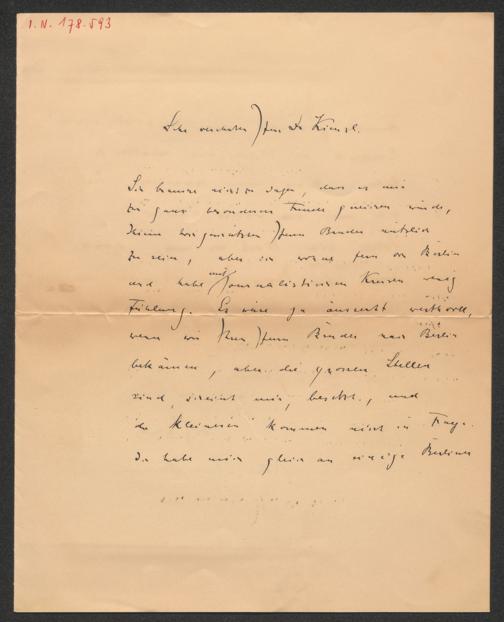 I.N. 178.593
Sehr verehrter Herr Dr Kienzl.
Sie brauche nicht zu sagen, dass es mir
zu ganz besonderer Freude gereichen würde,
Ihrem Herrn Bruder nützlich
zu sein, aber ich wohne fern von Berlin
und habe mit Journalistischen Kreisen wenig
Fühlung. Es wäre ja äusserst wertvoll,
wenn wir Ihren Herrn Bruder nach Berlin
bekämen, aber die grossen Stellen
sind, scheint mir, besetzt, und
die kleineren kommen nicht in Frage.
Ich habe mich gleich an einige Berliner